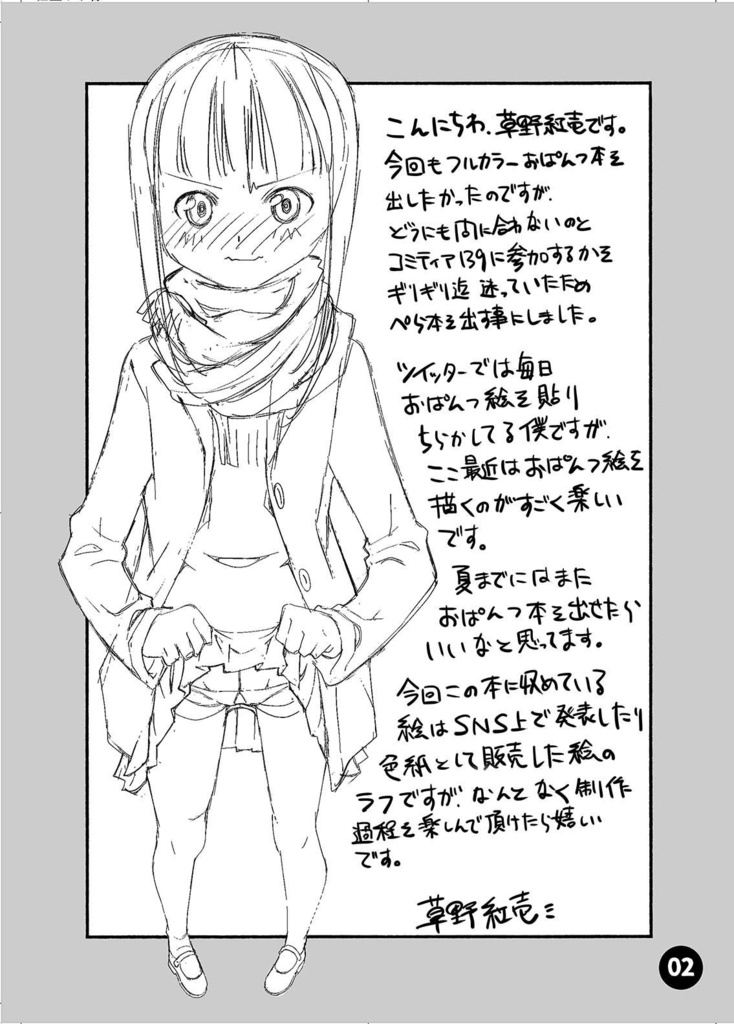 こんにちわ、草野紅壱です。
今回もフルカラーおぱんつ本を
出したかったのですが、
どうにも間に合わないのと
コミティア139に参加するかを
ギリギリ迄 迷っていたため
ぺら本を出す事にしました。
ツイッターでは毎日
おぱんつ絵を貼り
ちらかしてる僕ですが、
ここ最近はおぱんつ絵を
描くのがすごく楽しい
です。
夏までにはまた
おぱんつ本を出せたら
いいなと思ってます。
今回この本に収めている
絵はSNS上で発表したり
色紙として販売した絵の
ラフですが、なんとなく制作
過程を楽しんで頂けたら嬉しい
です。
草野紅壱
02